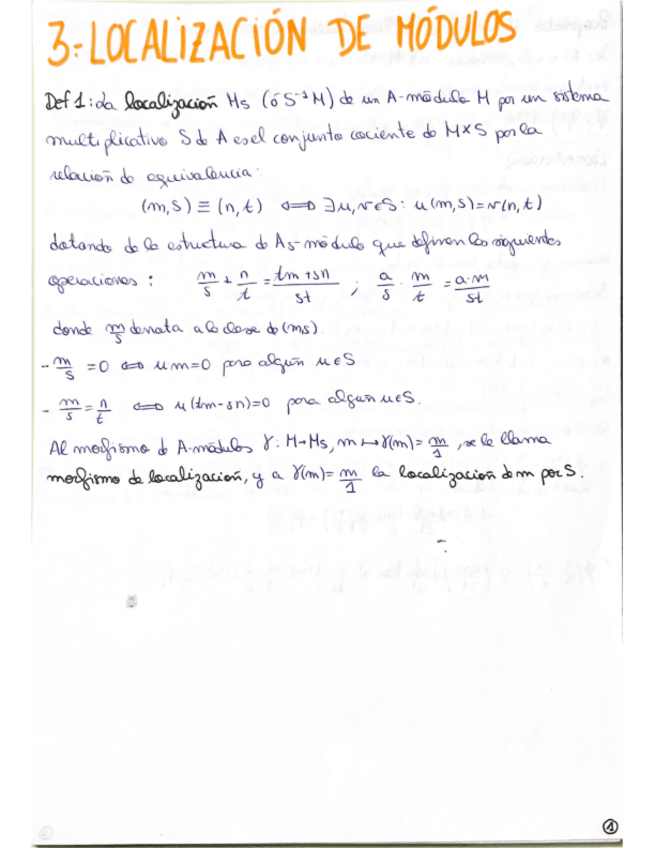 3.-LOCALIZACIÓN DE MÓDULOS
Def 1: La localización Ms (ó S⁻¹M) de un A-módulo M por un sistema
multiplicativo S de A es el conjunto cociente de M×S por la
relación de equivalencia:
(m,s) ≡ (n,t) ⟺ ∃u,v∈S: u(m,s)=v(n,t)
dotando de la estructura de As-módulo que definen las siguientes
operaciones: m/s + n/t = tm+sn/st ; a/s · m/t = a·m/st
donde m/s denota a la clase de (m,s).
- m/s = 0 ⟺ um=0 para algún u∈S
- m/s = n/t ⟺ u(tm-sn)=0 para algún u∈S.
Al morfismo de A-módulos γ: M→Ms, m↦γ(m)= m/1, se le llama
morfismo de localización, y a γ(m)= m/1 la localización de m por S.
1